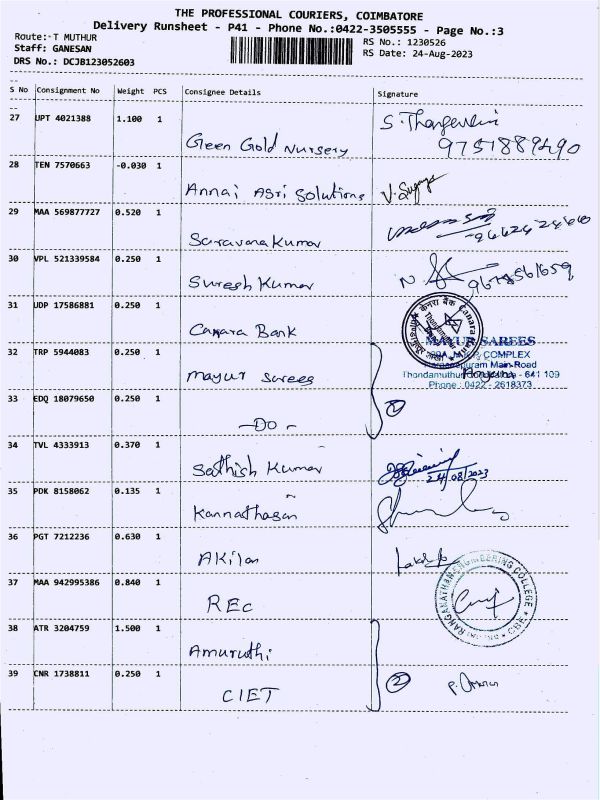 THE PROFESSIONAL COURIERS, COIMBATORE
Delivery Runsheet - P41 - Phone No.:0422-3505555 - Page No.:3
Route:-T MUTHUR
RS No.: 1230526
Staff: GANESAN
RS Date: 24-Aug-2023
DRS No.: DCJB123052603
S No Consignment No Weight PCS Consignee Details Signature
27 UPT 4021388 1.100 1
Green Gold Nursery
28 TEN 7570663 -0.030 1
Annai Agri Solutions
29 MAA 569877727 0.520 1
Saravana Kumar
30 VPL 521339584 0.250 1
Suresh Kumar
31 UDP 17586881 0.250 1
Canara Bank
MAYUR SAREES
32 TRP 5944083 0.250 1
COMPLEX
Mayur Sarees
Main Road
641 109
Phone : 0422 - 2618373
33 EDQ 18079650 0.250 1
-DO-
34 TVL 4333913 0.370 1
Sathish Kumar
24/08/2023
35 PDK 8158062 0.135 1
Kannathasan
36 PGT 7212236 0.630 1
Akilan
37 MAA 942995386 0.840 1
REC
RANGANATHAN ENGINEERING COLLEGE
CBE
38 ATR 3204759 1.500 1
Amuruthi
39 CNR 1738811 0.250 1
2
CIET